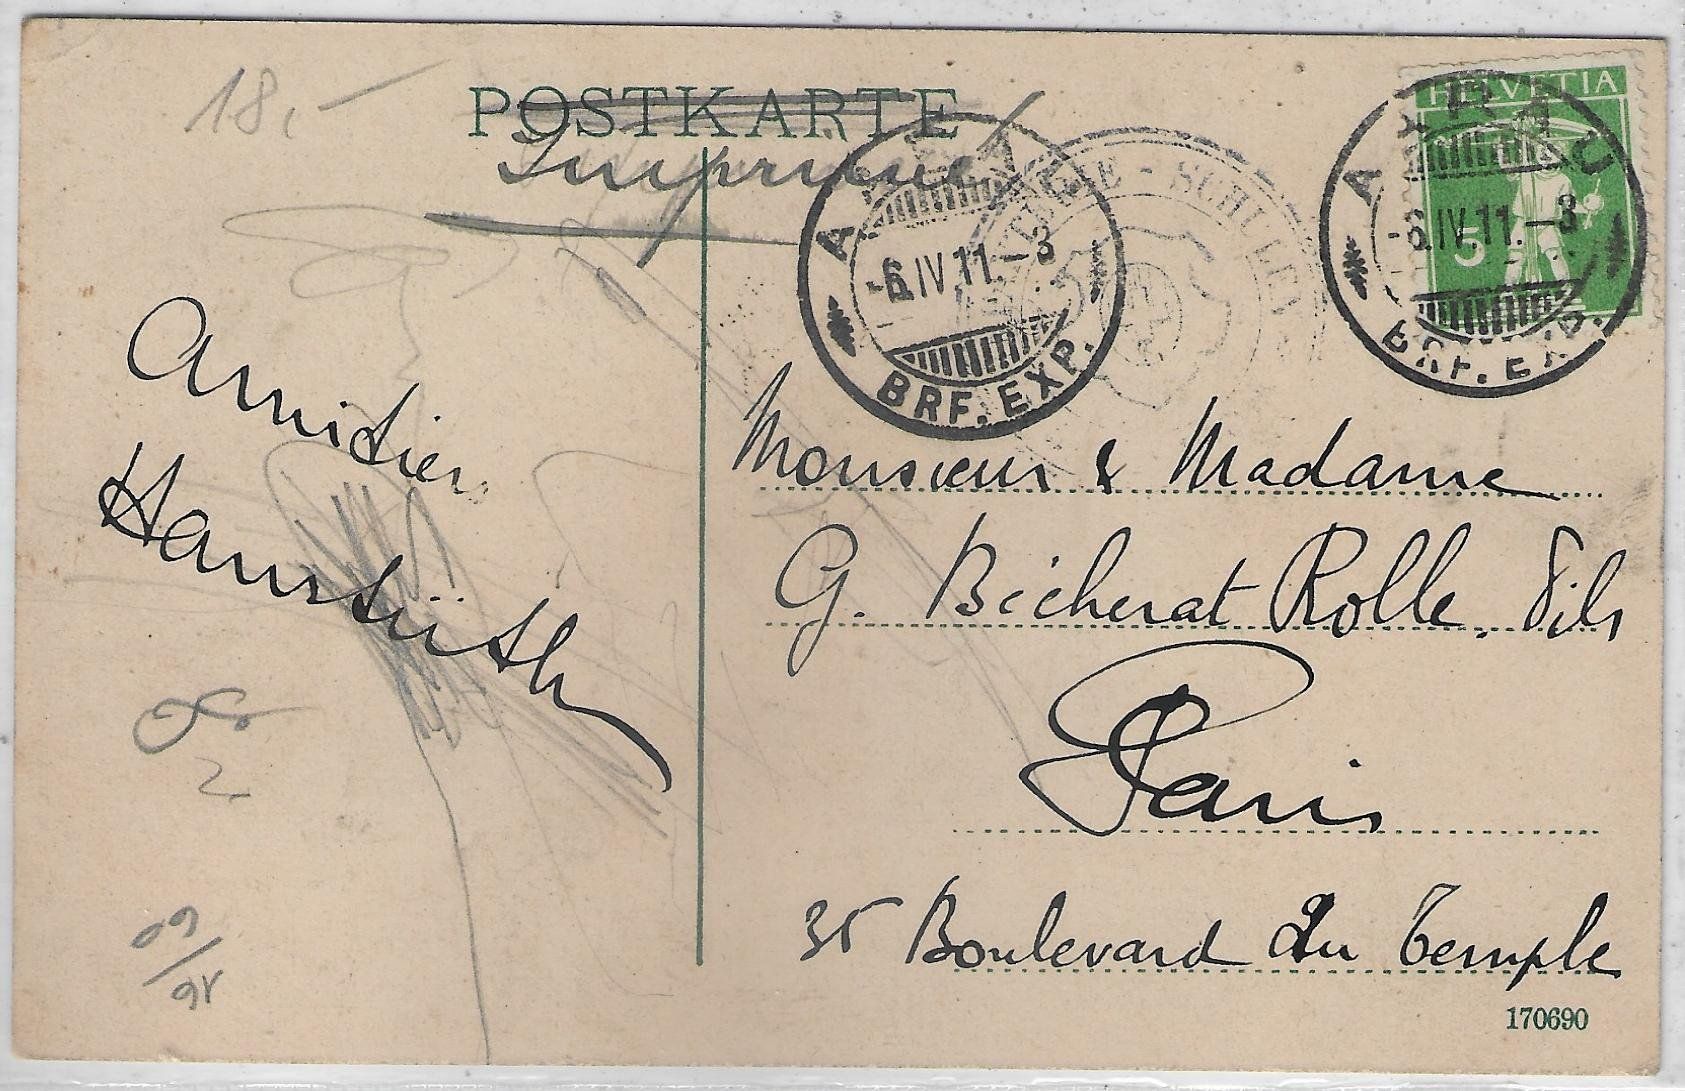 18,-
POSTKARTE
Imprimé
HELVETIA
5
AARAU
-6.IV.11.-3
BRF. EXP.
AARAU
-6.IV.11.-3
BRF. EXP.
- SCHULEN
Amitiés
Monsieur & Madame
G. Bicherat Rolle. Fils
Paris
35 Boulevard du Temple
170690